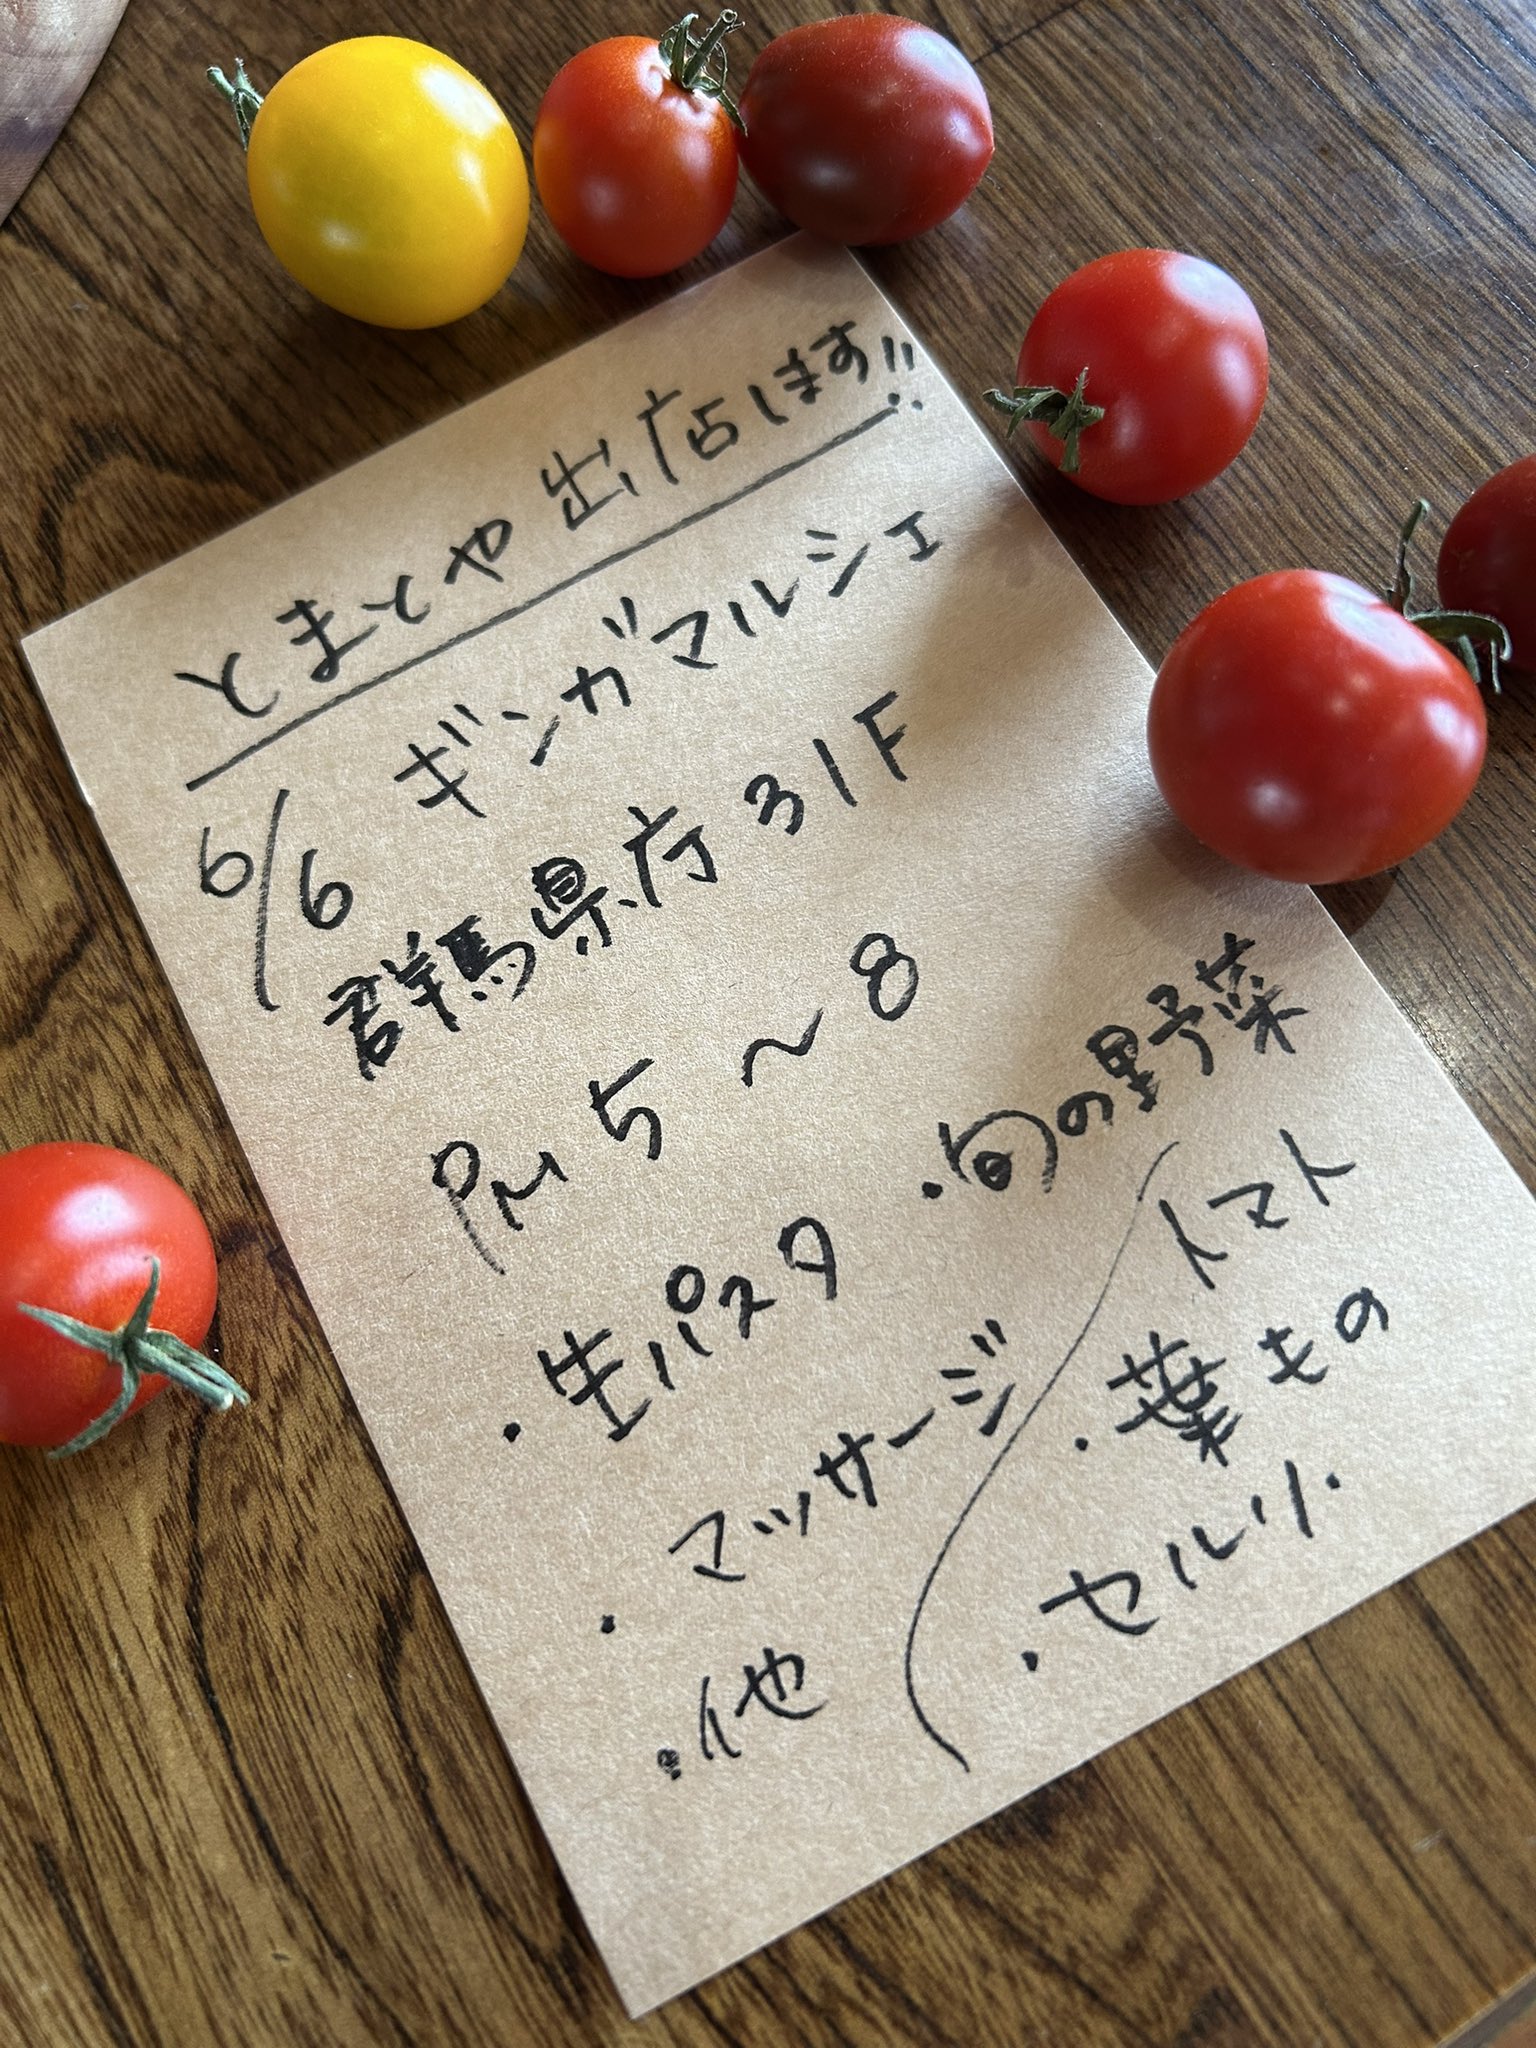 とまとや出店します!!
6/6 ギンガマルシェ
群馬県庁31F
PM 5〜8
・生パスタ
・マッサージ
・他
・旬の野菜
トマト
・葉もの
・セルリ.